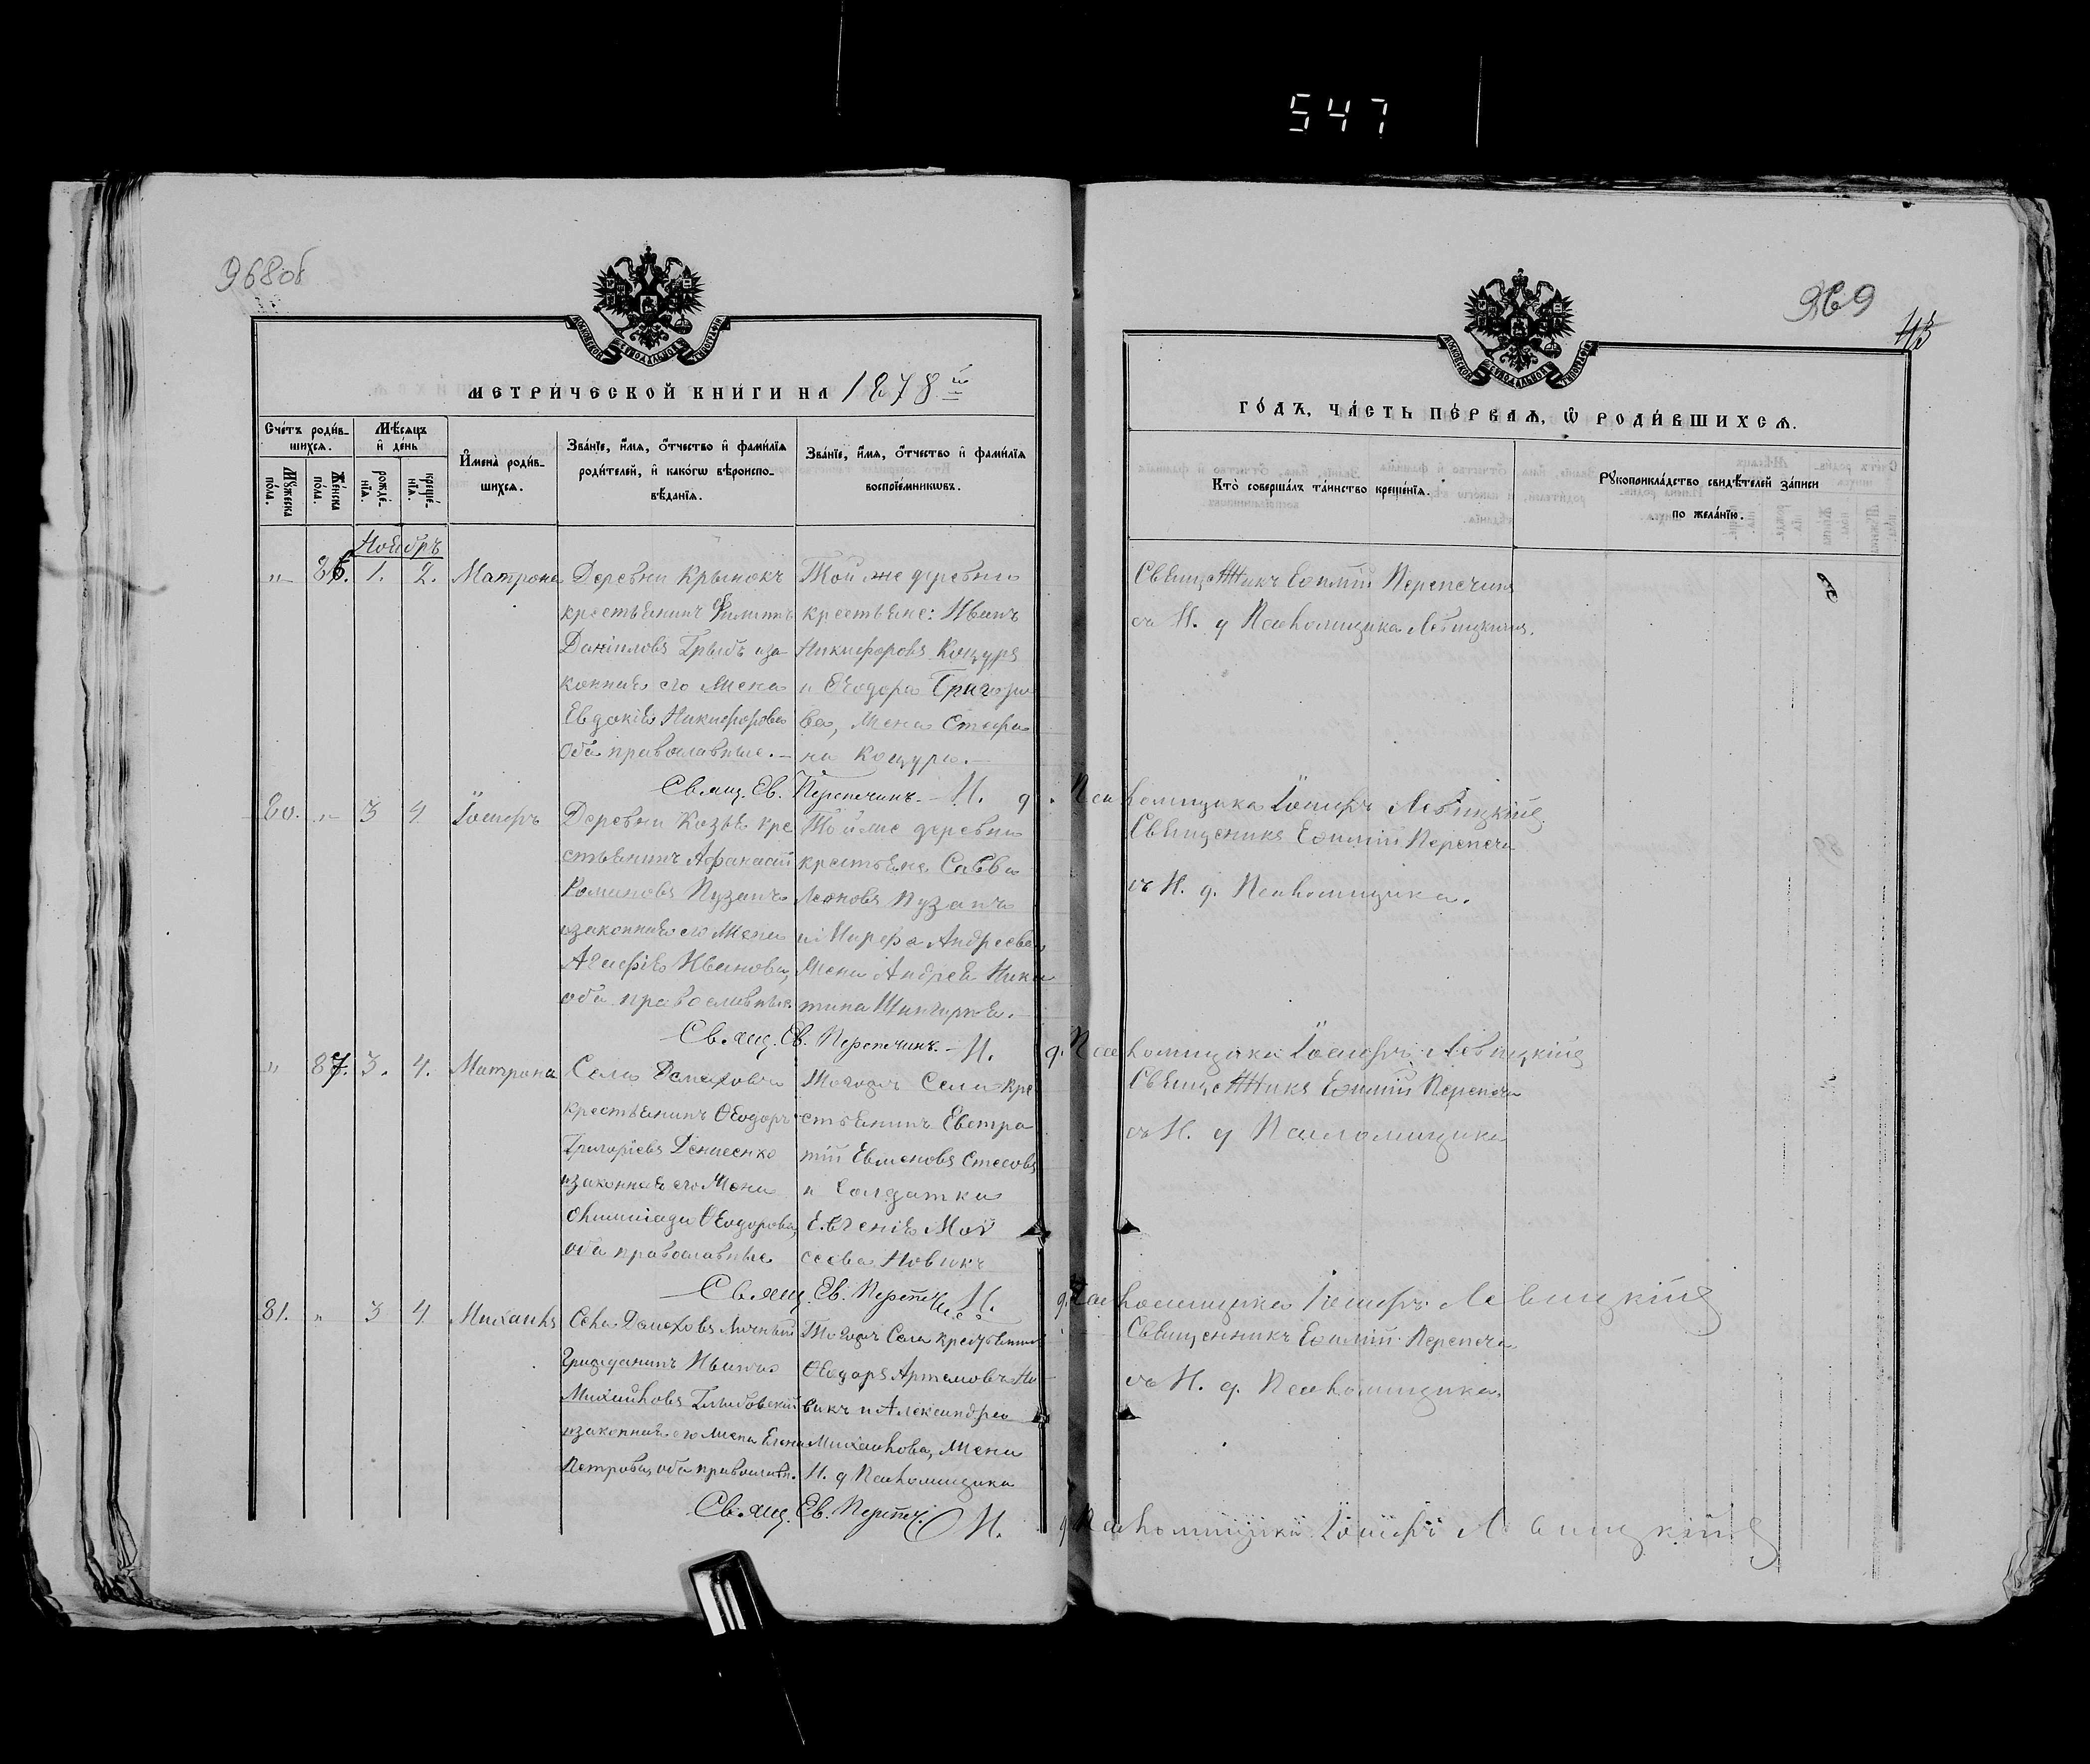 547
968об
969
113
МЕТРИ́ЧЕСКОЙ КНИ́ГИ НА 1878й
ГО́ДЪ, ЧА́СТЬ ПЕ́РВАѦ, Ѿ РОДИ́ВШИХСѦ.
Сче́тъ роди́в-
шихсѧ.
Мѣ́сѧцъ
и҆ де́нь
И҆мена̀ роди́в-
шихсѧ.
Зва́нїе, и҆́мѧ, ѻ҆́тчество и҆ фами́лїѧ
роди́телей, и҆ како́гѡ вѣроиспо-
вѣ́данїѧ.
Зва́нїе, и҆́мѧ, ѻ҆́тчество и҆ фами́лїѧ
воспрїе́мникѡвъ.
Мꙋ́жеска
по́ла.
Же́нска
по́ла.
рожде́-
нїѧ.
креще́-
нїѧ.
Кто̀ соверша́лъ та́инство креще́нїѧ.
Рꙋкоприкла́дство свидѣ́телей за́писи
по жела́нїю.
Ноябрь
„ 86. 1. 2. Матрона
Деревни Крынокъ
крестьянинъ Филиппъ
Даніиловъ Грыбъ иза-
конная его жена
Евдокія Никифорова
оба православные.-
Той же деревни
крестьяне: Иванъ
Никифоровъ Коцуръ
и Ѳеодора Григорье
ва, жена Стефа
на Коцура.-
Священникъ Евѳимій Перепечинъ
съ И. д Псаломщика Левицкимъ.
Свящ. Ев. Перепечинъ.- И. д. Псаломщика Іосифъ Левицкій
80. „ 3 4 Іосифъ
Деревни Козье кре
стьянинъ Афанасій
Романовъ Пузанъ
изаконная его жена
Агафія Иванова,
оба православные.
Той же деревни
крестьяне Савва
Леоновъ Пузанъ
и Андреева
жена Андрея Ники
тина
Священникъ Евѳимій Перепечи
съ И. д. Псаломщика.
Свящ. Ев. Перепечинъ.- И. д. Псаломщика Іосифъ Левицкій
„ 87. 3. 4. Матрона
Села
крестьянинъ Ѳеодоръ
Григоріевъ Денисенко
изаконная его жена
Ѳеодорова,
оба православные
Тогожъ Села кре
стьянинъ Евстра
тій
и Солдатка
Евгенія Мой
сеева Новикъ
Священникъ Евѳимій Перепечи
съ И. д Псаломщика
Свящ. Ев. Перепеч И. д. Псаломщика Іосифъ Левицкій
81. „ 3 4 Михаилъ
Села Личный
Гражданинъ Иванъ
Михайловъ
изаконная его жена Елена
Петрова, оба православн.
Тогожъ Села крестьянинъ
Ѳеодоръ Артемовъ Но
викъ и Александра
Михайлова, жена
И. д Псаломщика
Священникъ Евѳимій Перепечи
съ И. д. Псаломщика.
Свящ. Ев. Перепеч. И. д Псаломщика Іосифъ Левицкій